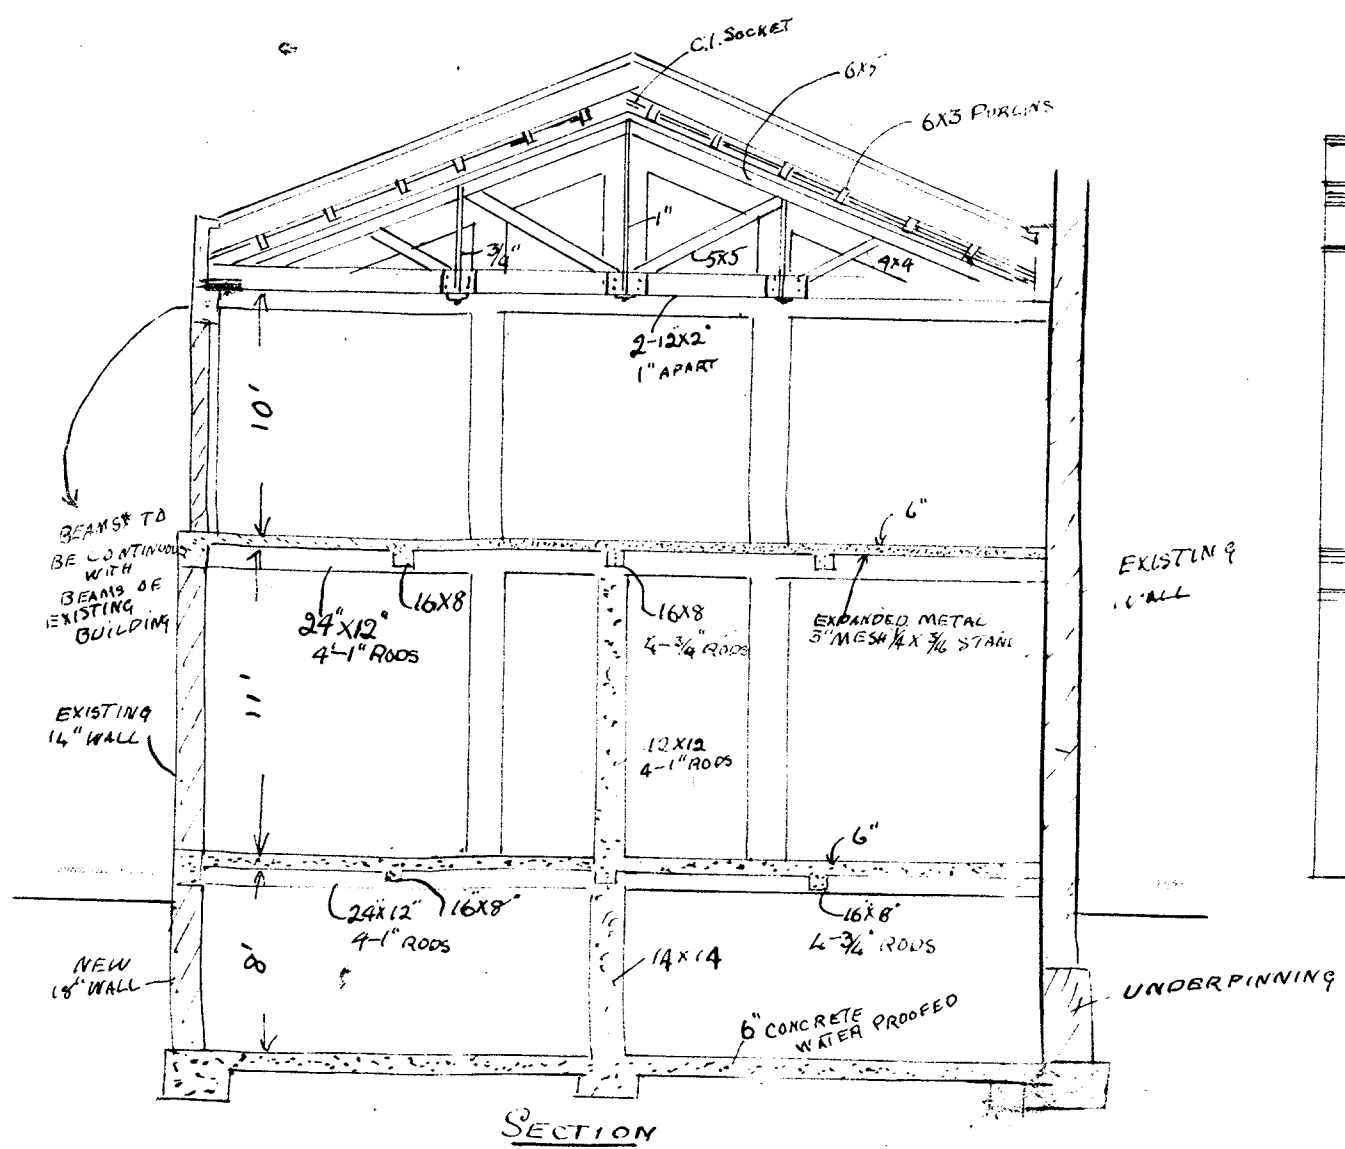 C.I. SOCKET
6X5"
6X3 PURLINS
1"
3/4"
5X5
4X4
2-12"X2"
1" APART
10'
BEAMS TO
BE CONTINUOUS
WITH
BEAMS OF
EXISTING
BUILDING
6"
EXISTING
WALL
16X8
24"X12"
4-1" RODS
16X8
4-3/4" RODS
EXPANDED METAL
3" MESH 1/4 X 3/16
11'
EXISTING
14" WALL
12X12
4-1" RODS
6"
24"X12"
4-1" RODS
16"X8"
16"X8"
4-3/4" RODS
8'
NEW
18" WALL
14X14
UNDERPINNING
6" CONCRETE
WATER PROOFED
SECTION